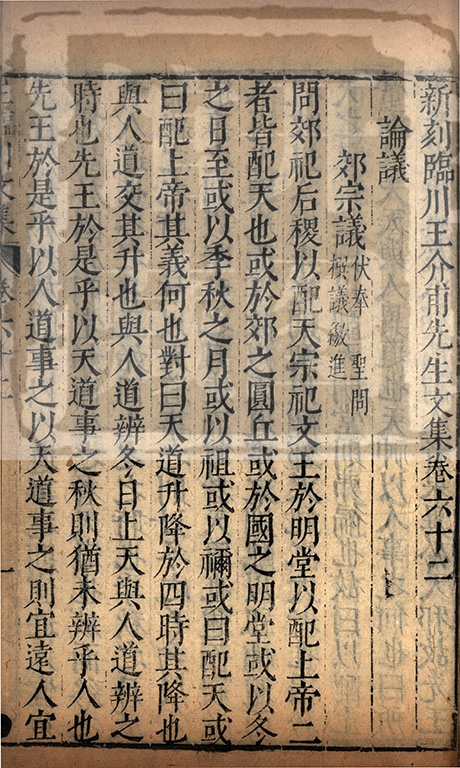 新刻臨川王介甫先生文集卷六十二
論議
郊宗議 伏奉聖問
撰議繳進
問郊祀后稷以配天宗祀文王於明堂以配上帝二
者皆配天也或於郊之圓丘或於國之明堂或以冬
之日至或以季秋之月或以祖或以禰或曰配天或
曰配上帝其義何也對曰天道升降於四時其降也
與人道交其升也與人道辨冬日上天與人道辨之
時也先王於是乎以天道事之秋則猶未辨乎人也
先王於是乎以人道事之以天道事之則宜遠人宜